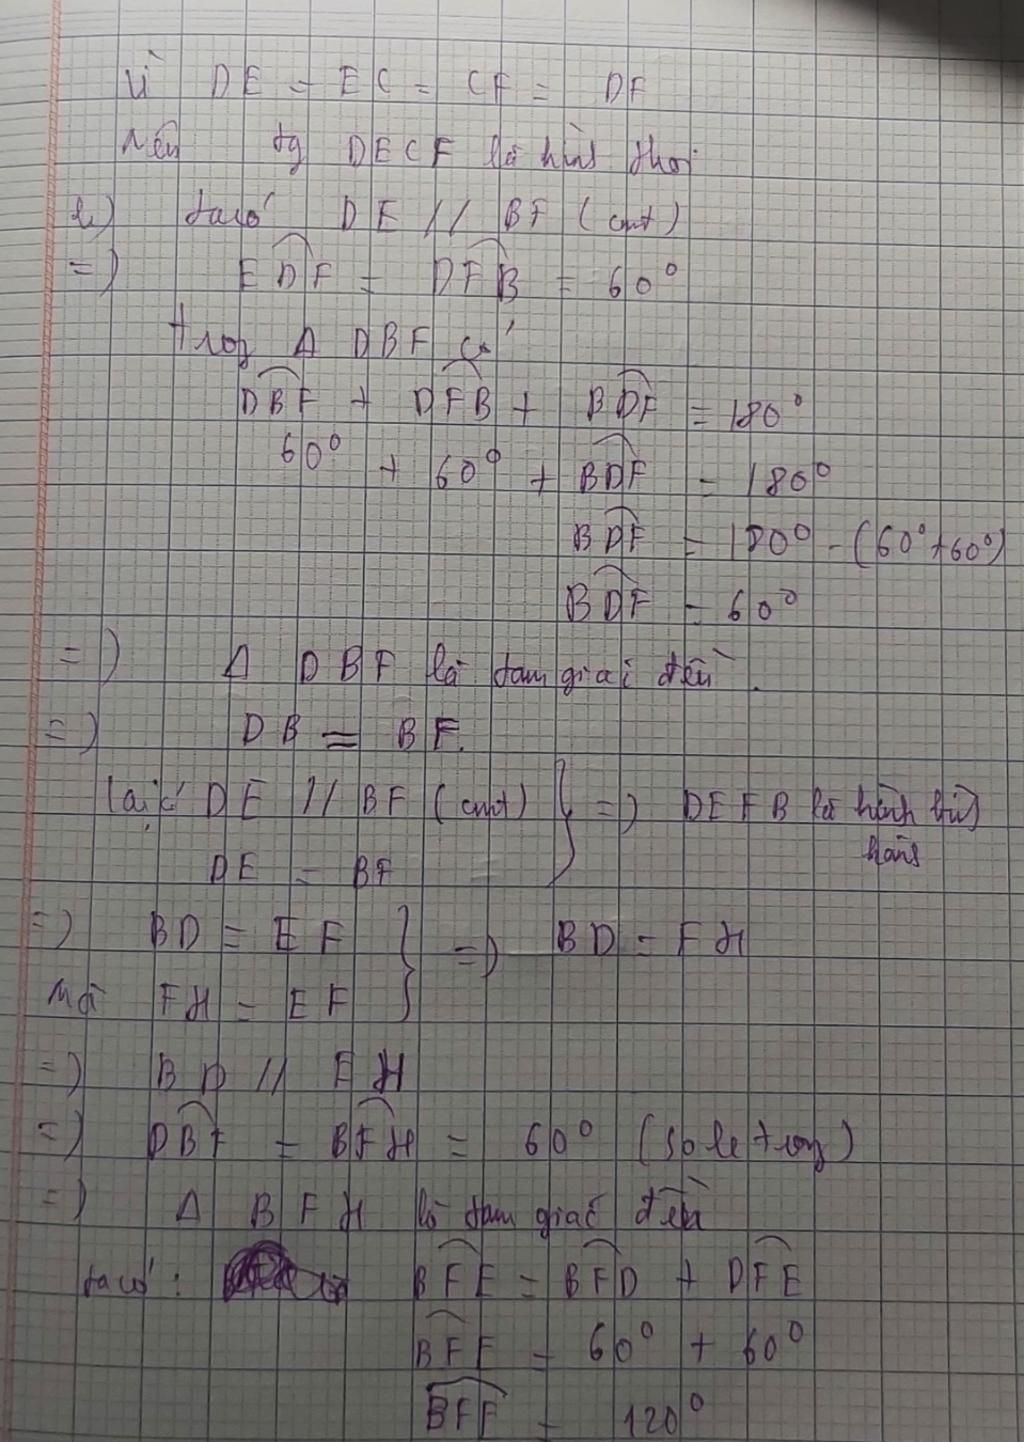 Vì DE = EC = CF = DF
Nên tg DECF là hình thoi
b) ta có DE // BF (cmt)
=) EDF = DFB = 60°
trog Δ DBF có
DBF + DFB + BDF = 180°
60° + 60° + BDF = 180°
BDF = 180° - (60°+60°)
BDF = 60°
=) Δ DBF là tam giác đều.
=) DB = BF.
lại có DE // BF (cmt) } =) DEFB là hình bình hành
DE = BF
=) BD = EF } =) BD = FH
Mà FH = EF
=) BD // EH
=) DBF = BFH = 60° (so le trog)
=) Δ BFH là tam giác đều
ta có: BFE = BFD + DFE
BFE = 60° + 60°
BFE = 120°